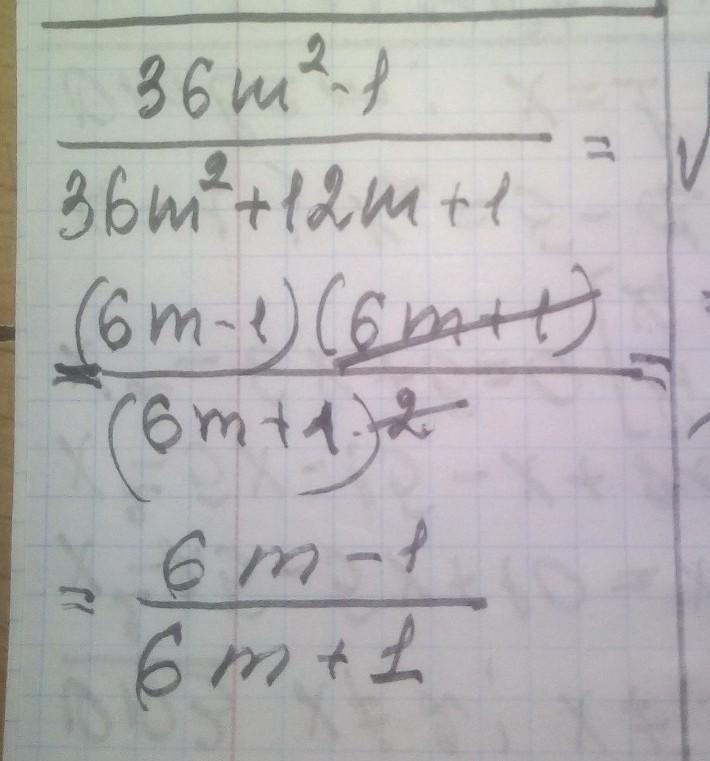 36m²-1
36m²+12m+1 =
(6m-1)(6m+1)
= =
(6m+1)²
6m-1
=
6m+1